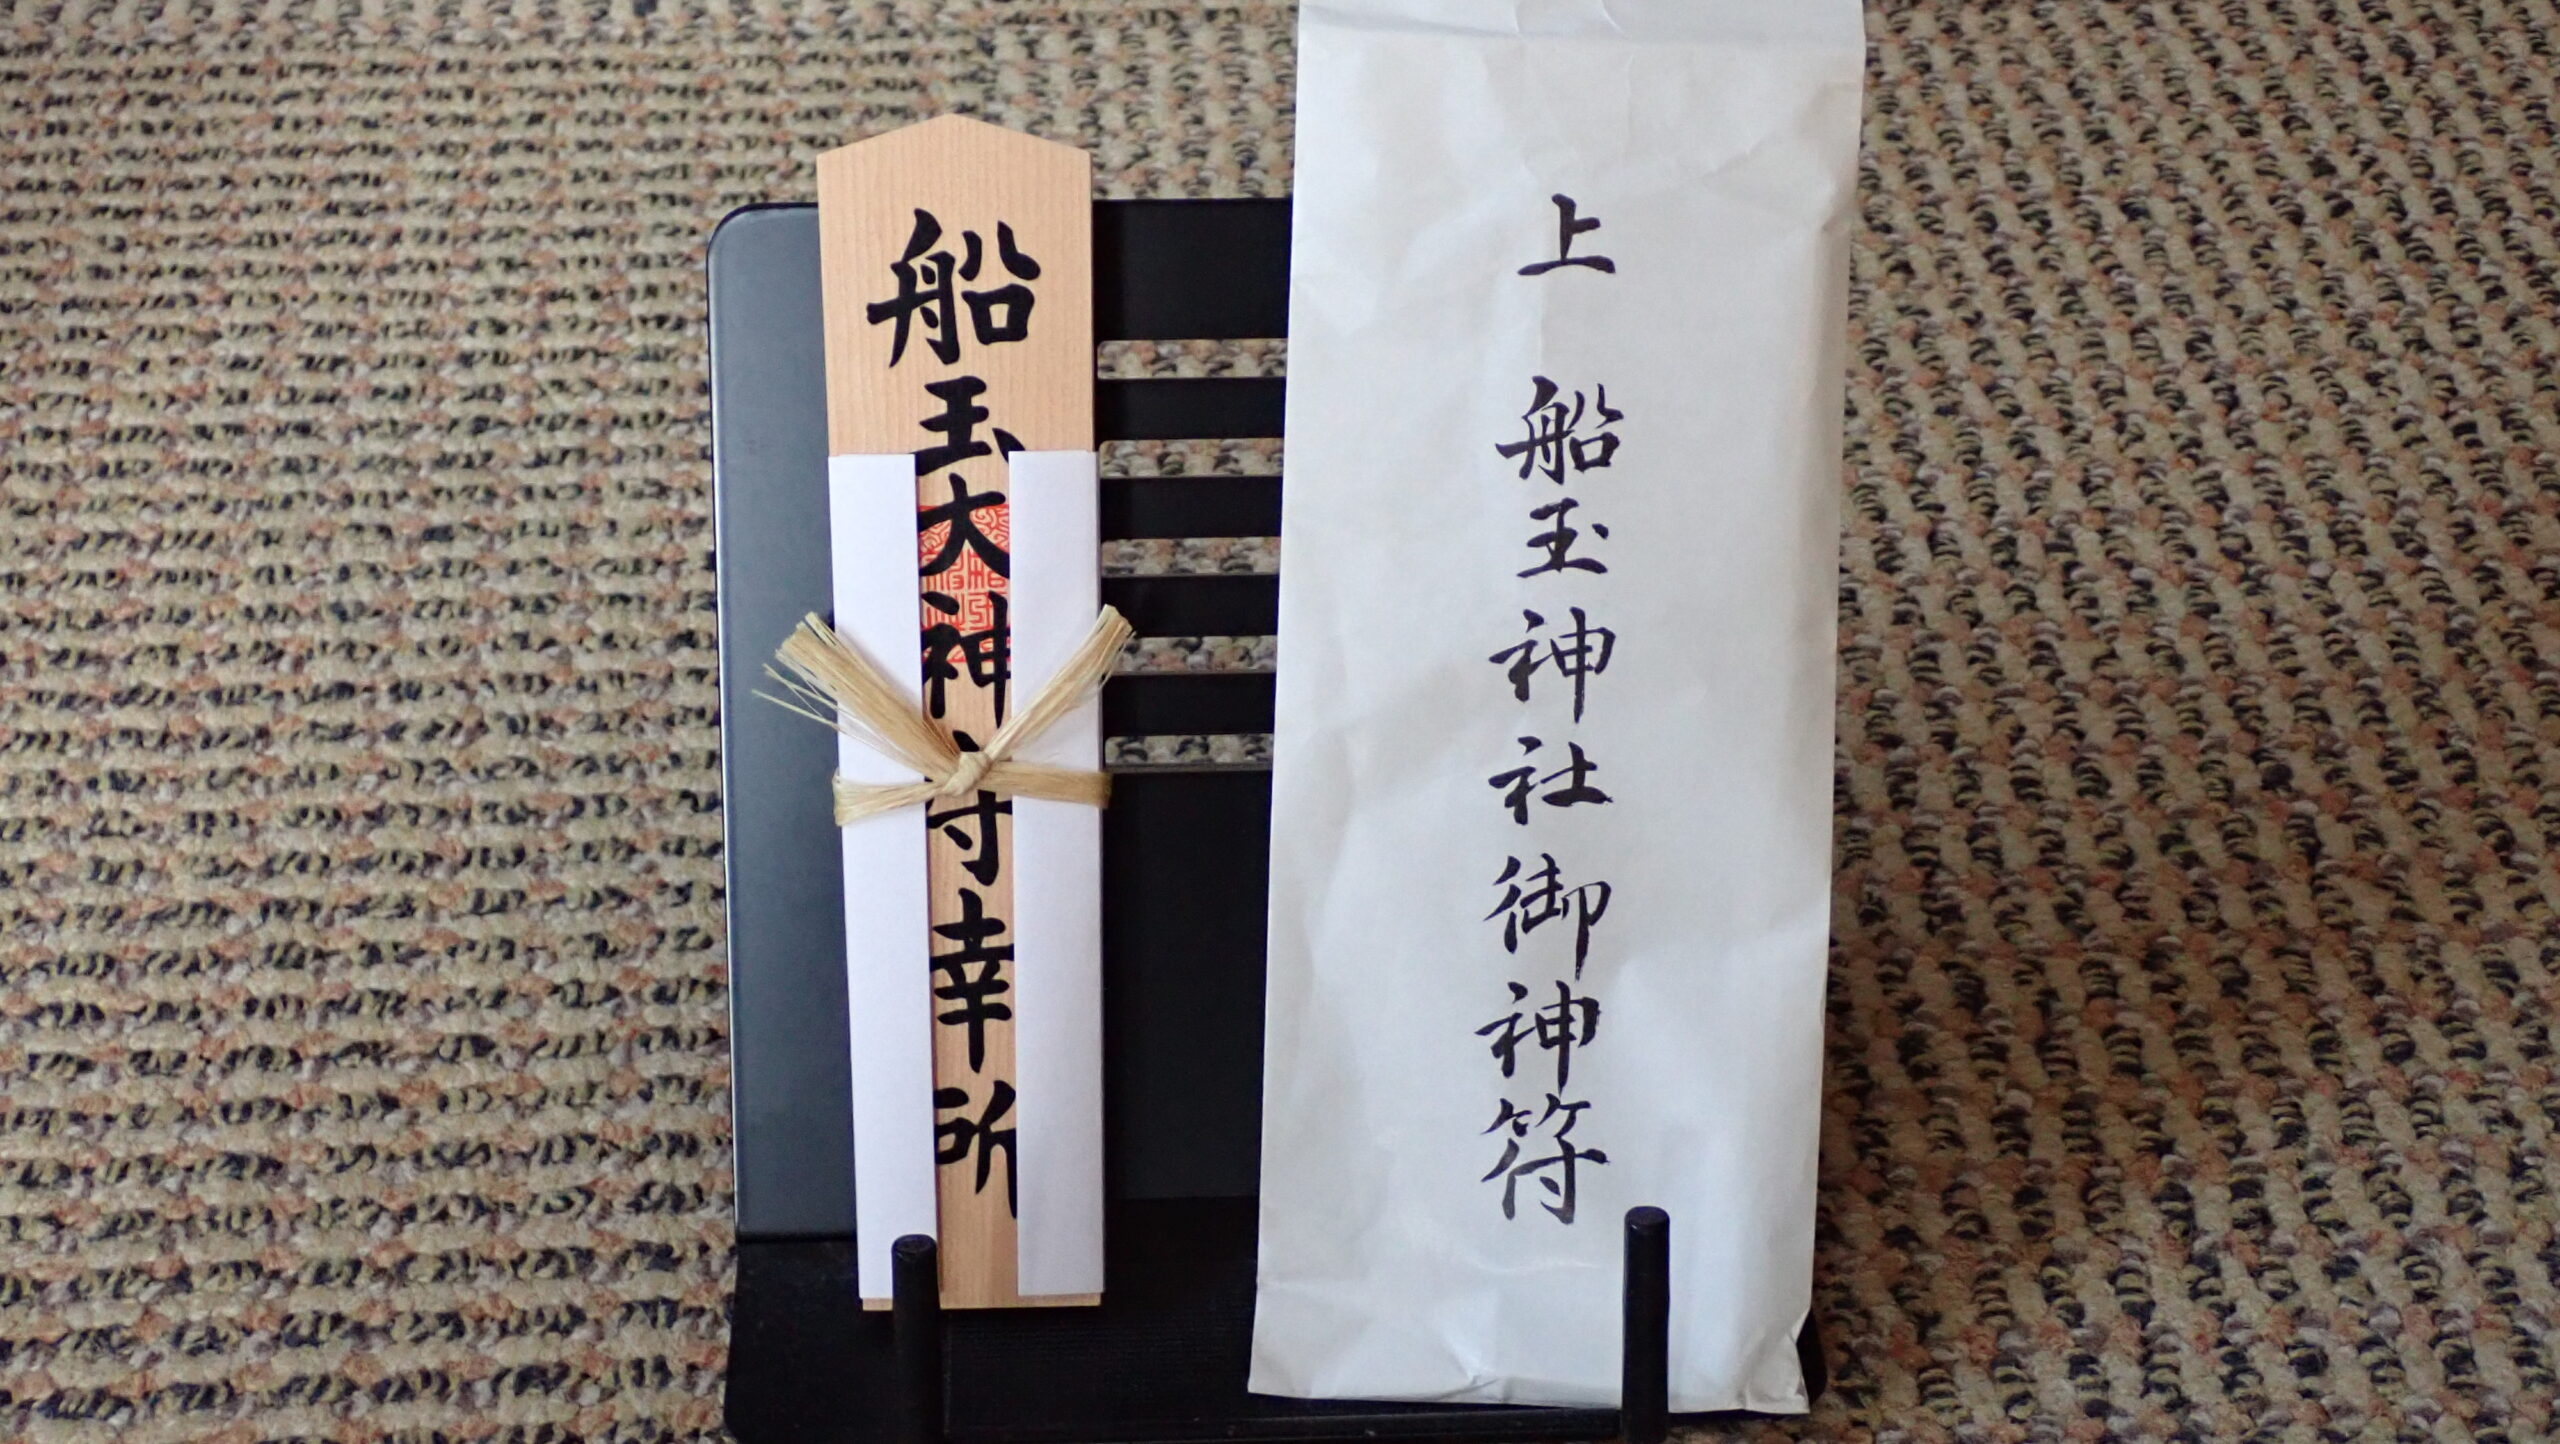 船玉大神守幸所
上 船玉神社御神符